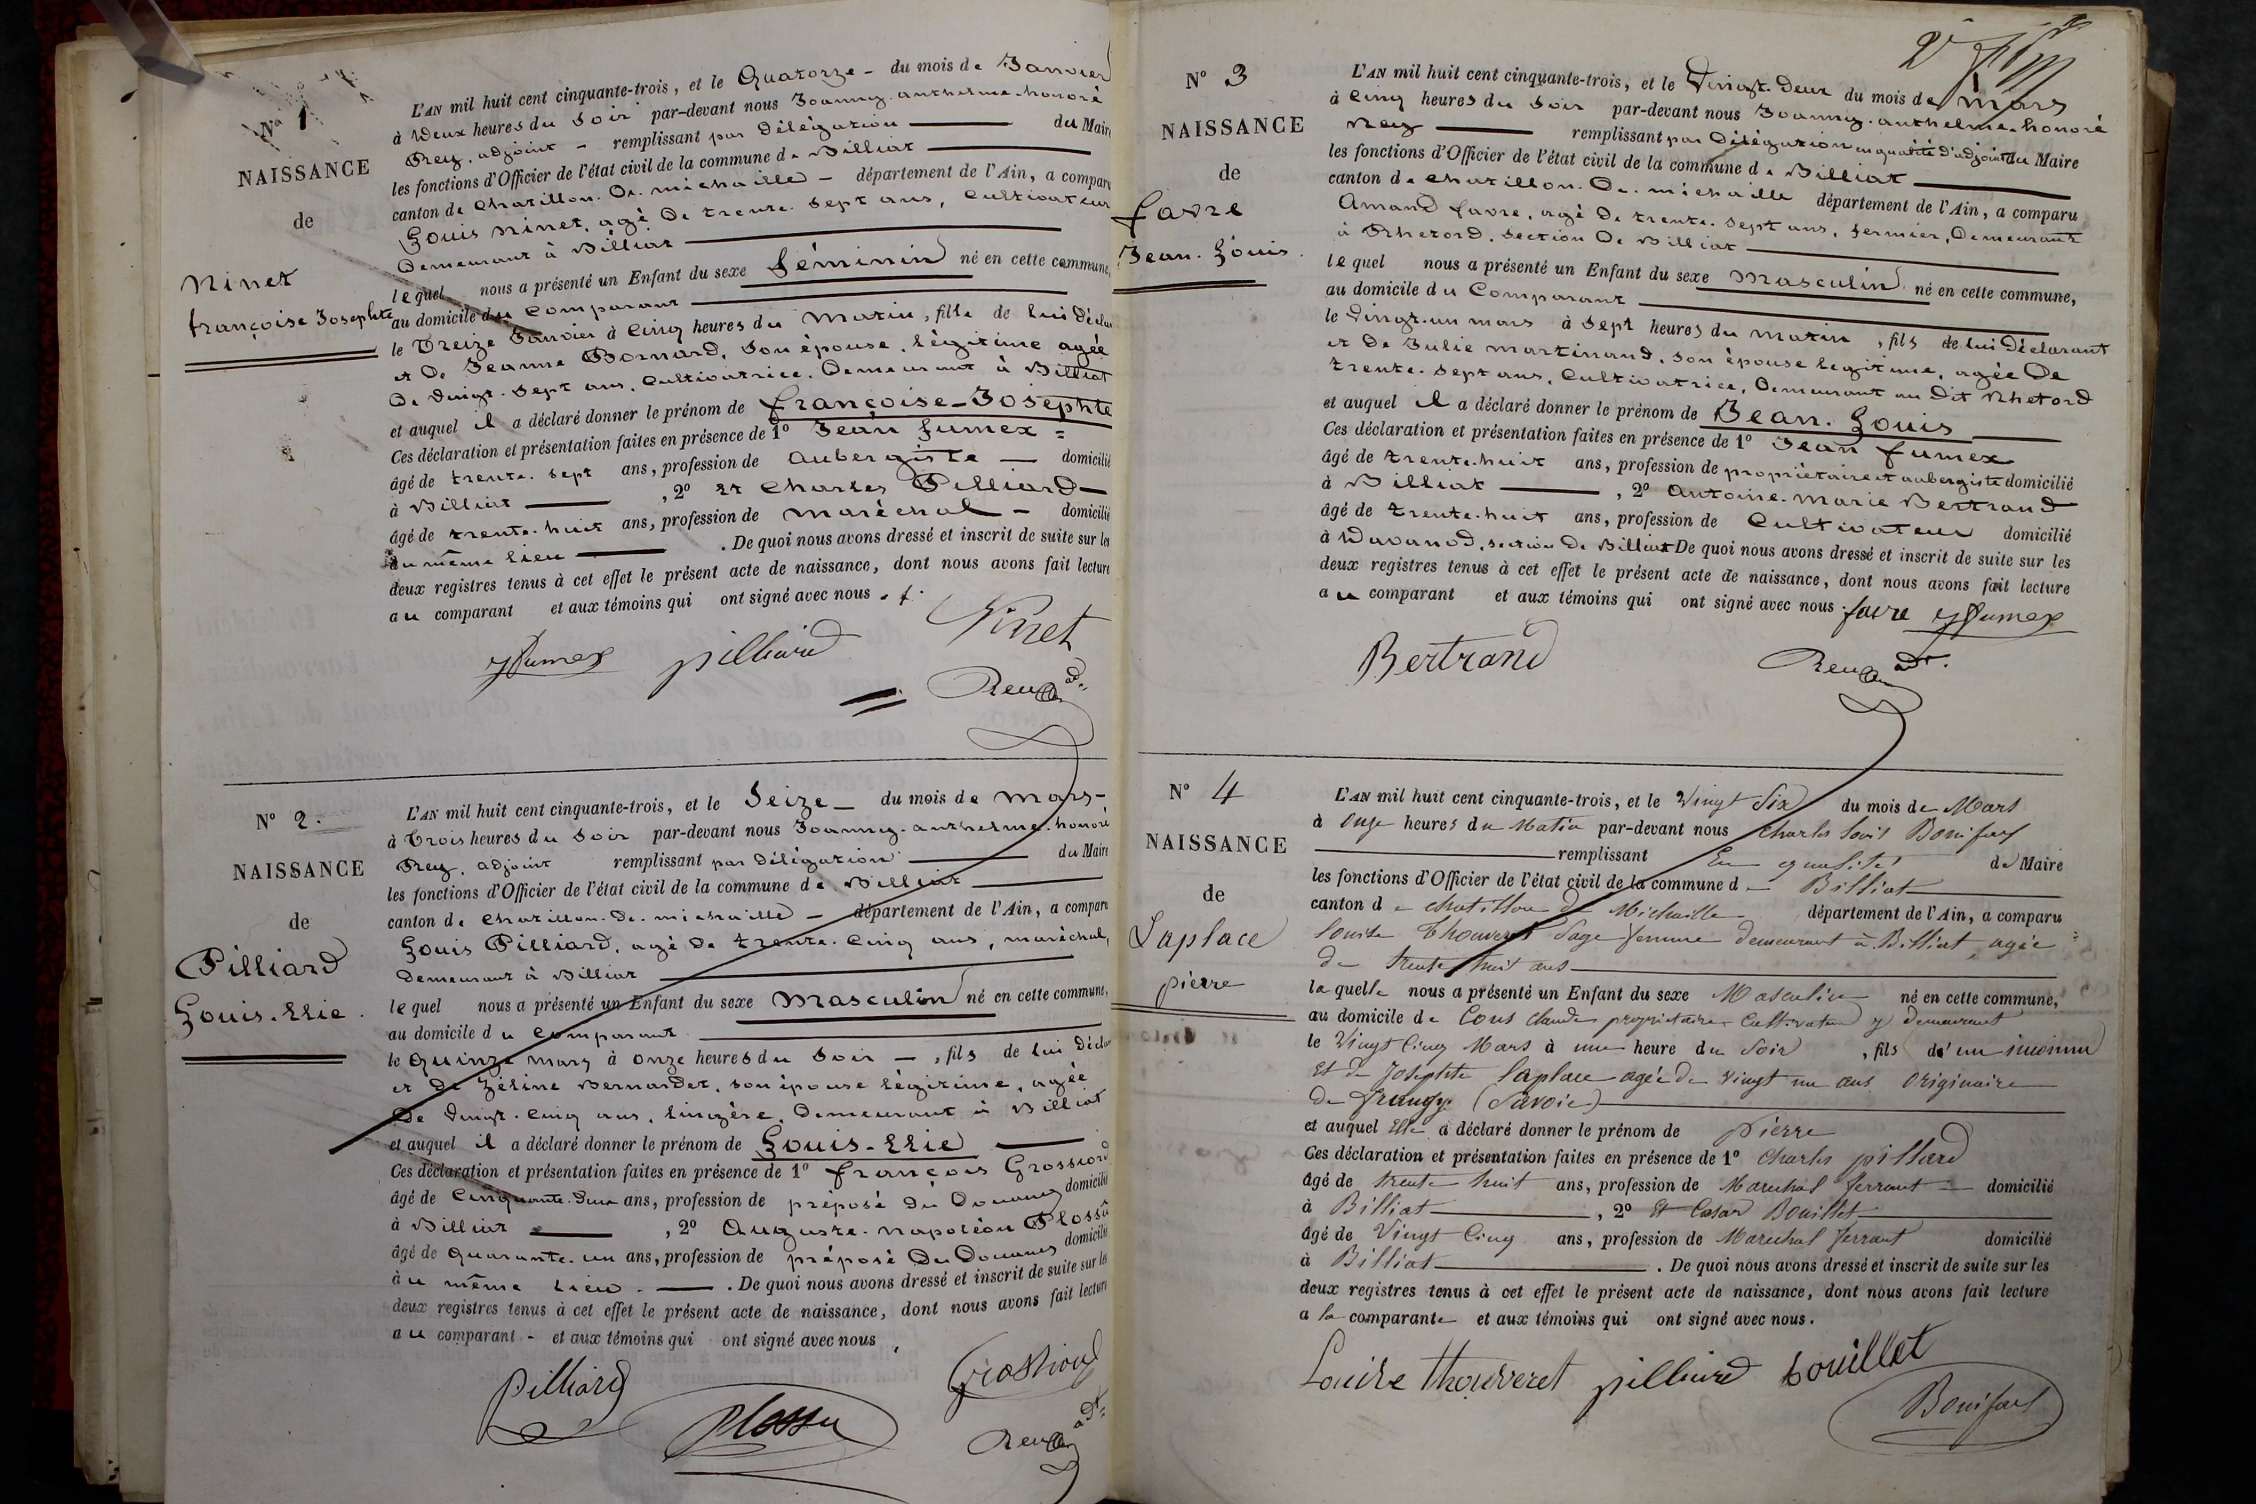 N° 1
NAISSANCE
de
Ninet
françoise Josephte
L'AN mil huit cent cinquante-trois, et le Quatorze - du mois de Janvier
à Deux heures du Soir par-devant nous Joanny. anthelme. honoré
Rey, adjoint - remplissant par délégation du Maire
les fonctions d'Officier de l'état civil de la commune de Billiat
canton de Chatillon. De. michaille - département de l'Ain, a comparu
Louis Ninet, agé De trente. Sept ans, Cultivateur
Demeurant à Billiat
lequel nous a présenté un Enfant du sexe féminin né en cette commune,
au domicile du Comparant
le Treize Janvier à Cinq heures du Matin, fille de lui décla
et De Jeanne Bornard, Son épouse, légitime agée
De Vingt. Sept ans, Cultivatrice, Demeurant à Billiat
et auquel il a déclaré donner le prénom de françoise-Josephte
Ces déclaration et présentation faites en présence de 1° Jean fumex =
âgé de trente. sept ans, profession de Aubergiste - domicilié
à Billiat , 2° Et Charles Pilliard -
âgé de trente. huit ans, profession de maréchal - domicilié
au même lieu . De quoi nous avons dressé et inscrit de suite sur les
deux registres tenus à cet effet le présent acte de naissance, dont nous avons fait lecture
au comparant et aux témoins qui ont signé avec nous
Ninet
fumex pilliard
Rey adt
N° 2.
NAISSANCE
de
Pilliard
Louis. Elie.
L'AN mil huit cent cinquante-trois, et le Seize - du mois de mars -
à Trois heures du Soir par-devant nous Joanny. anthelme. honoré
Rey, adjoint remplissant par délégation du Maire
les fonctions d'Officier de l'état civil de la commune de Billiat
canton de Chatillon. De. michaille - département de l'Ain, a comparu
Louis Pilliard, agé De trente. Cinq ans, maréchal,
Demeurant à Billiat
lequel nous a présenté un Enfant du sexe Masculin né en cette commune,
au domicile du Comparant
le quinze mars à onze heures du Soir - , fils de lui décla
et De Zéline Bernardet, son épouse légitime, agée
De Vingt. Cinq ans, lingère, Demeurant à Billiat
et auquel il a déclaré donner le prénom de Louis-Elie
Ces déclaration et présentation faites en présence de 1° françois Grossiord
âgé de Cinquante. Deux ans, profession de préposé Du Douanes domicilié
à Billiat , 2° Auguste. Napoléon Plossu
âgé de quarante. un ans, profession de préposé Du Douanes domicilié
au même Lieu . De quoi nous avons dressé et inscrit de suite sur les
deux registres tenus à cet effet le présent acte de naissance, dont nous avons fait lecture
au comparant - et aux témoins qui ont signé avec nous,
Pilliard Grossiord
Plossu
Rey adt
N° 3
NAISSANCE
de
favre
Jean. Louis.
L'AN mil huit cent cinquante-trois, et le Vingt. Deux du mois de Mars
à Cinq heures du Soir par-devant nous Joanny. anthelme. honoré
Rey remplissant par Délégation en qualité d'adjoint du Maire
les fonctions d'Officier de l'état civil de la commune de Billiat
canton de Chatillon. De. michaille département de l'Ain, a comparu
Amand favre, agé De trente. Sept ans, fermier, Demeurant
à Rhetord, Section De Billiat
lequel nous a présenté un Enfant du sexe Masculin né en cette commune,
au domicile du Comparant
le Vingt-un mars à Sept heures du Matin, fils de lui Déclarant
et De Julie Martinand, son épouse legitime, agée De
trente. Sept ans, Cultivatrice, Demeurant au Dit Rhetord
et auquel il a déclaré donner le prénom de Jean. Louis
Ces déclaration et présentation faites en présence de 1° Jean fumex
âgé de trente. huit ans, profession de propriétaire et aubergiste domicilié
à Billiat , 2° Antoine. Marie Bertrand
âgé de trente. huit ans, profession de Cultivateur domicilié
à Davanod, section De Billiat De quoi nous avons dressé et inscrit de suite sur les
deux registres tenus à cet effet le présent acte de naissance, dont nous avons fait lecture
au comparant et aux témoins qui ont signé avec nous. favre fumex
Bertrand Rey adt.
N° 4
NAISSANCE
de
Laplace
pierre
L'AN mil huit cent cinquante-trois, et le Vingt Six du mois de Mars
à onze heures du Matin par-devant nous Charles Louis Bonifax
remplissant En qualité de Maire
les fonctions d'Officier de l'état civil de la commune de Billiat
canton de Chatillon de Michaille département de l'Ain, a comparu
Louise Thouveret Sage femme demeurant à Billiat, agée
de trente huit ans
laquelle nous a présenté un Enfant du sexe Masculin né en cette commune,
au domicile de Cons Claude propriétaire Cultivateur y demeurant
le Vingt Cinq Mars à une heure du Soir , fils d'un inconnu
Et de Josephte Laplace agée de vingt un ans Originaire
de frangy (Savoie)
et auquel Elle a déclaré donner le prénom de pierre
Ces déclaration et présentation faites en présence de 1° Charles pillard
âgé de trente huit ans, profession de Marechal ferrant domicilié
à Billiat , 2° Et Cesar Bouillet
âgé de Vingt Cinq ans, profession de Marechal ferrant domicilié
à Billiat . De quoi nous avons dressé et inscrit de suite sur les
deux registres tenus à cet effet le présent acte de naissance, dont nous avons fait lecture
a la comparante et aux témoins qui ont signé avec nous.
Louise thouveret pilliard bouillet
Bonifax